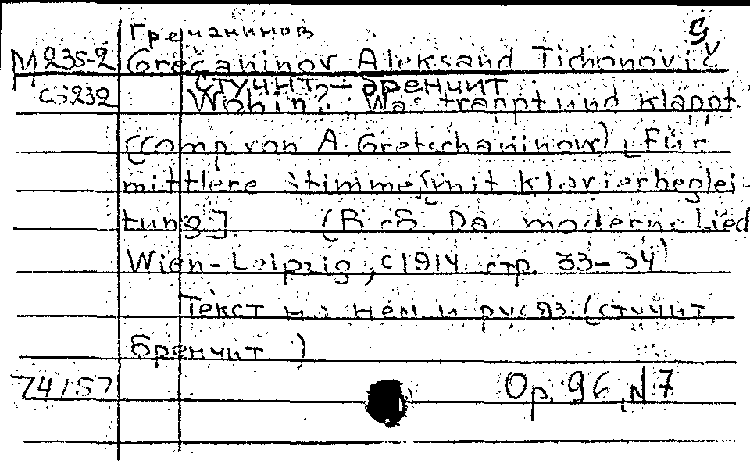 Гречанинов
М 235-2 Grečaninov Aleksand Tichonovič
сз232 Стучит, бренчит
Wohin? Was trappt und klappt.
(comp von A. Gretschaninow) [Für
mittlere Stimme mit Klavierbeglei-
tung]. (В сб. Das moderne Lied
Wien-Leipzig, c1914 стр. 33-34)
Текст на нем и рус яз (стучит,
бренчит )
74157 Op. 96, N 7